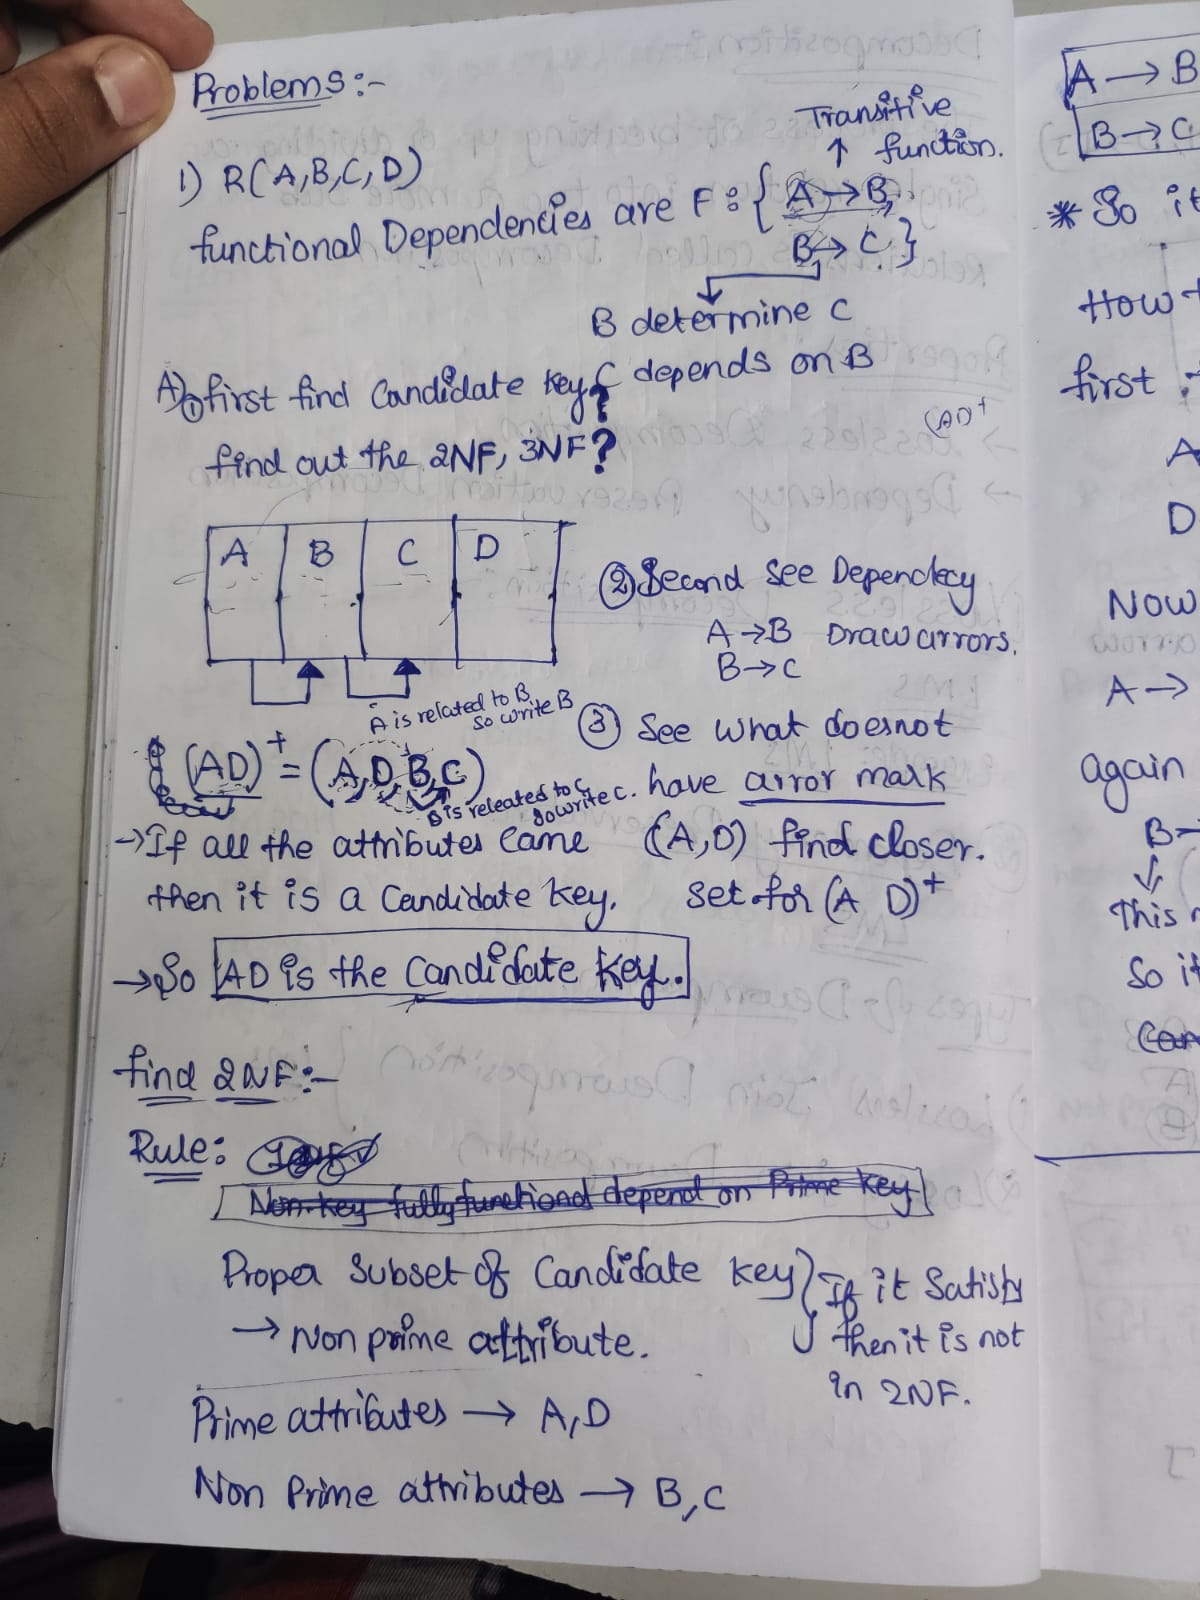 Problems:-
Transitive
↑ function.
1) R(A,B,C,D)
functional Dependencies are F:{A→B,
B→C}
B determine C
C depends on B
A) ① first find Candidate key?
(AD)+
find out the 2NF, 3NF?
A B C D
② Second See Dependecy
A→B Draw arrors.
B→C
A is related to B
So write B
③ See what doesnot
have arror mark
(A,D) find closer.
Set for (A D)+
(AD)+ = (A,D,B,C)
B is releated to C
so write C.
→If all the attributes Came
then it is a Candidate key.
→So AD is the Candidate key.
find 2NF:-
Rule:
Non-key fully functional depend on Prime key
Proper Subset of Candidate key
→ Non prime attribute.
If it Satisfy
then it is not
in 2NF.
Prime attributes → A,D
Non Prime attributes → B,C
A→B
B→C
* So it
How
first
A
D
Now
A→
again
B→
This
So it